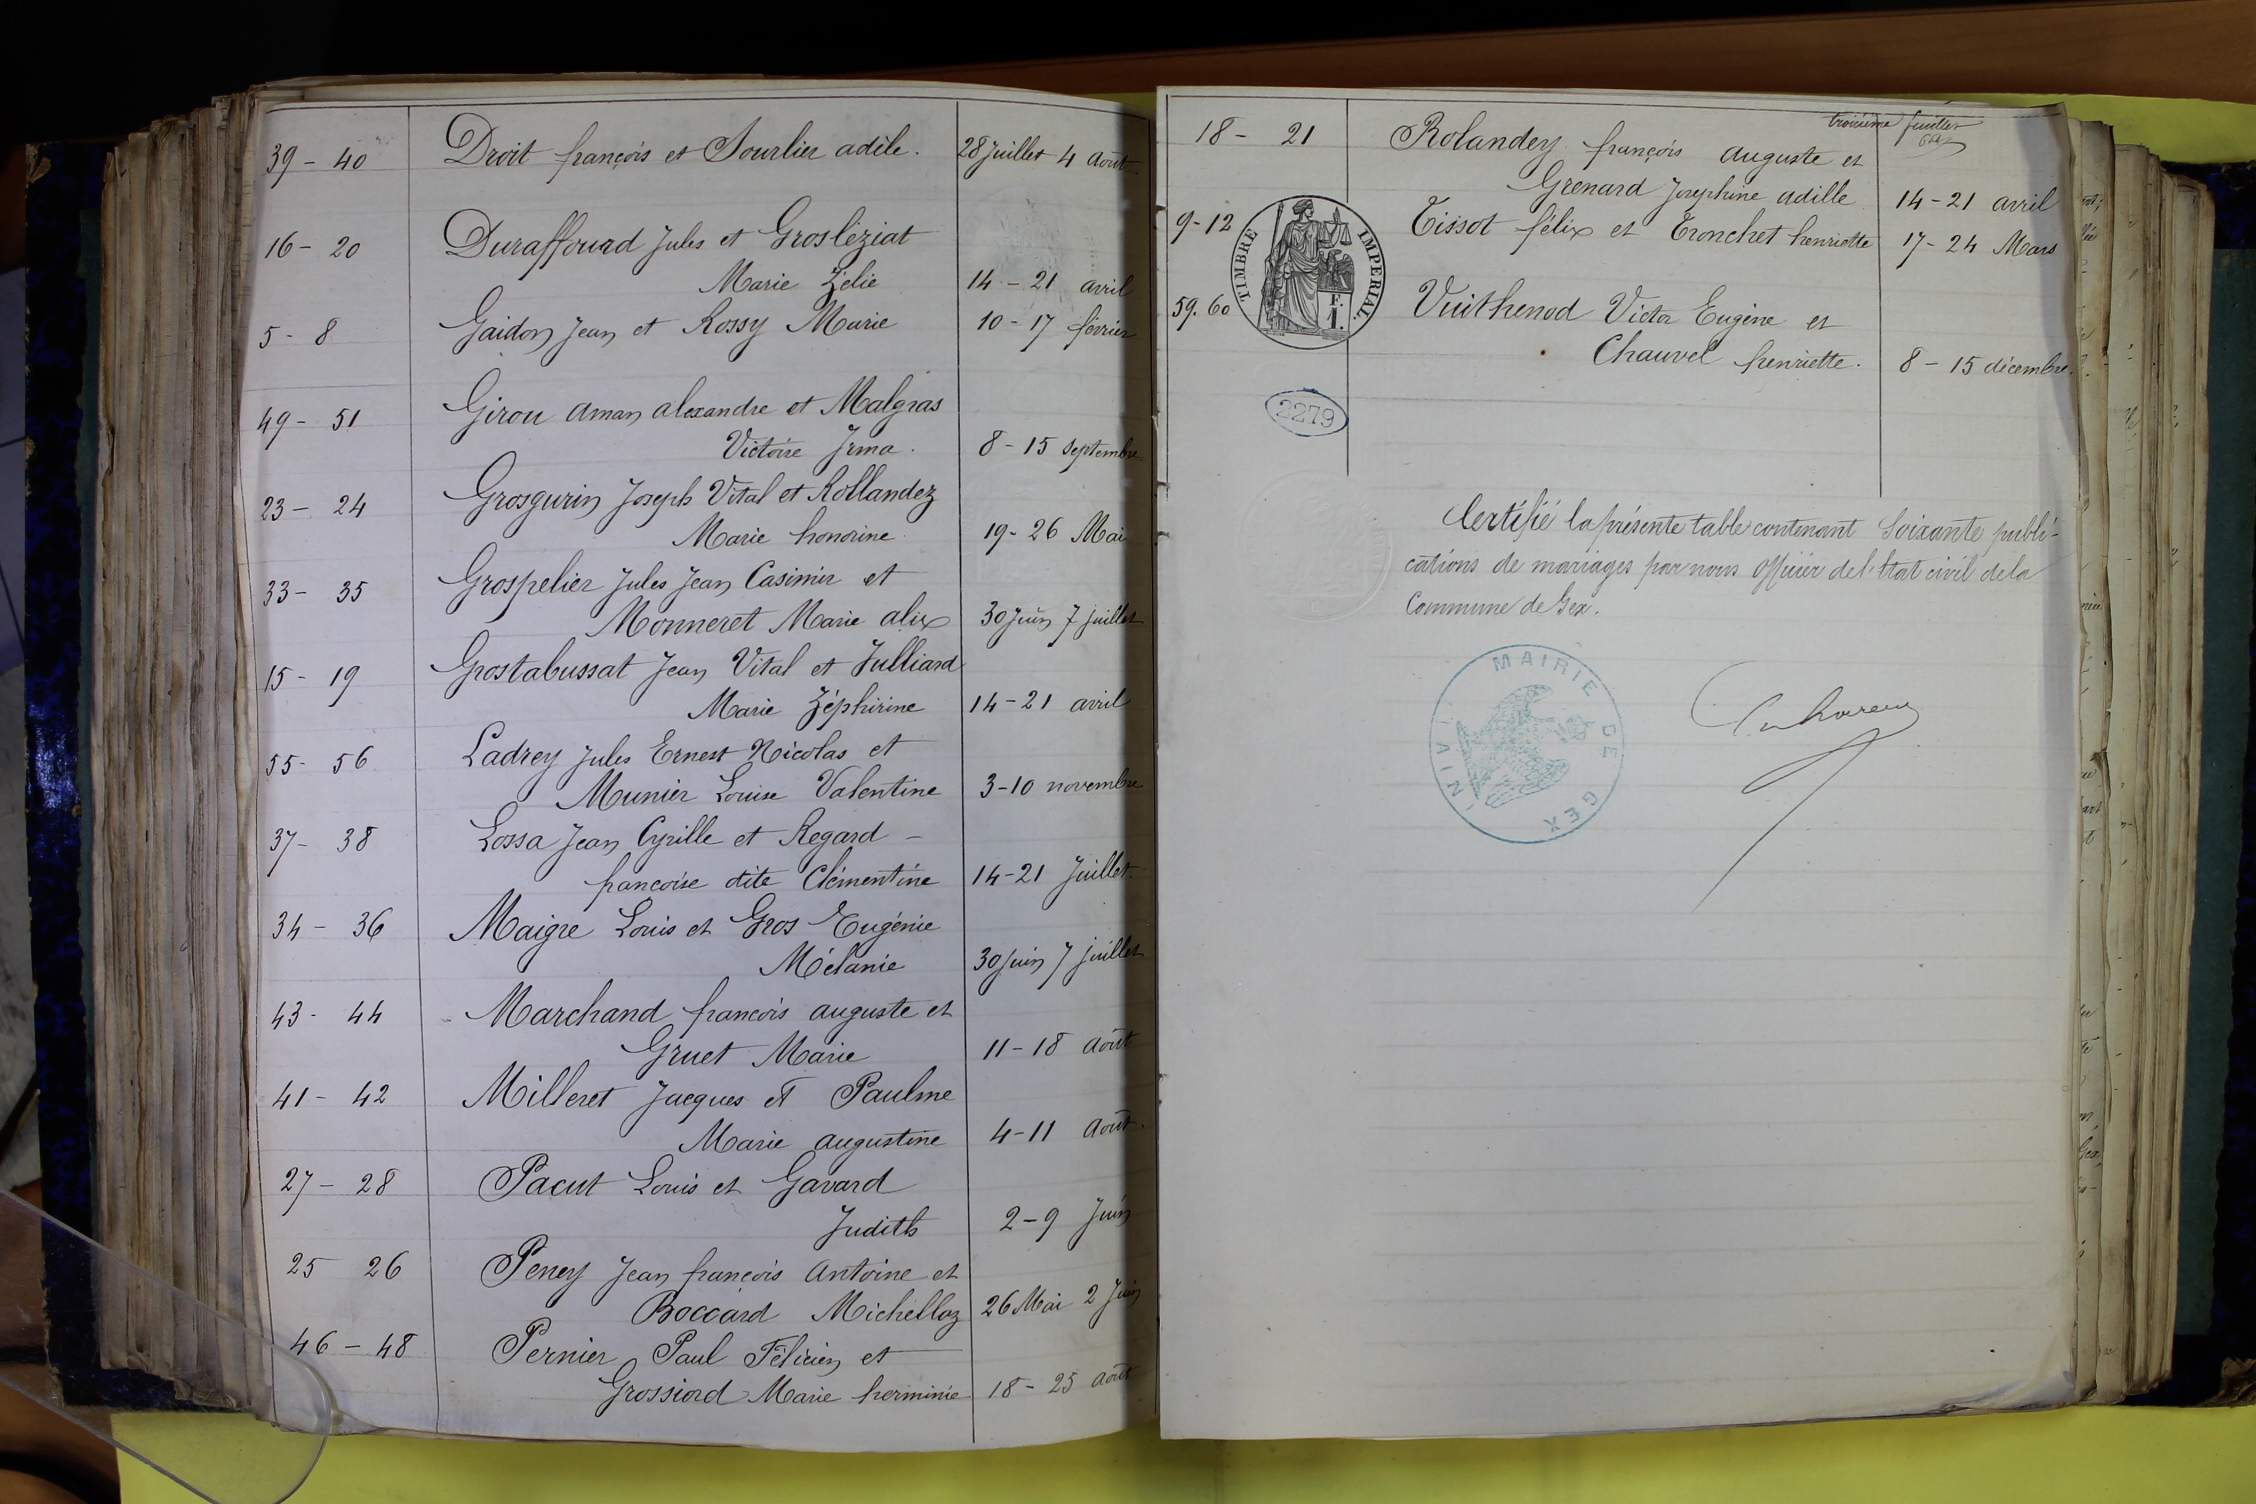 39 - 40 Droit françois et Sourlier adèle. 28 Juillet 4 Août
16 - 20 Duraffourd Jules et Grosléziat
Marie Zélie 14 - 21 avril
5 - 8 Gaidon Jean et Rossy Marie 10 - 17 février
49 - 51 Girou aman alexandre et Malgras
Victoire Irma. 8 - 15 septembre
23 - 24 Grosgurin Joseph Vital et Rollandez
Marie honorine 19 - 26 Mai
33 - 35 Grospelier Jules Jean Casimir et
Monneret Marie alix 30 Juin 7 juillet
15 - 19 Grostabussat Jean Vital et Julliard
Marie Zéphirine 14 - 21 avril
55 - 56 Ladrey Jules Ernest Nicolas et
Munier Louise Valentine 3 - 10 novembre
37 - 38 Lossa Jean Cyrille et Regard -
francoise dite Clémentine 14 - 21 Juillet.
34 - 36 Maigre Louis et Gros Eugénie
Mélanie 30 Juin 7 juillet
43 - 44 Marchand francois auguste et
Gruet Marie 11 - 18 août
41 - 42 Milleret Jacques et Paulme
Marie augustine 4 - 11 Août.
27 - 28 Pacut Louis et Gavard
Judith 2 - 9 Juin
25 26 Peney Jean françois Antoine et
Boccard Michelloz 26 Mai 2 Juin
46 - 48 Pernier Paul Félicien et
Grossiord Marie herminie 18 - 25 août
troisième feuillet
18 - 21 Rolandey françois auguste et
Grenard Josephine adille 14 - 21 avril
9 - 12 Tissot félix et Tronchet henriette 17 - 24 Mars
TIMBRE IMPERIAL.
F.
I.
59. 60 Vuithenod Victor Eugène et
Chauvel henriette. 8 - 15 décembre.
2279
Certifié la présente table contenant Soixante publi-
cations de mariages par nous officier de l'Etat civil de la
Commune de Gex.
MAIRIE DE GEX
(AIN)